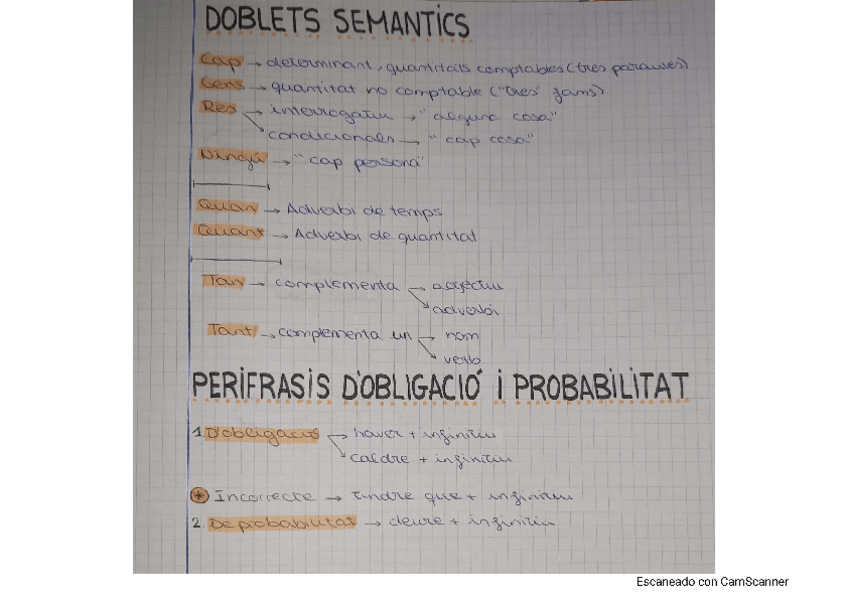 DOBLETS SEMANTICS
Cap → determinant, quantitats comptables (tres paraules)
Gens → quantitat no comptable ("tres" gams)
Res → interrogatiu → "alguna cosa"
→ condicionals → "cap cosa"
Ningú → "cap persona"
Quan → Adverbi de temps
Quant → Adverbi de quantitat
Tan → complementa → adjectiu
→ adverbi
Tant → complementa un → nom
→ verb
PERIFRASIS D'OBLIGACIÓ i PROBABILITAT
1. D'obligació → haver + infinitiu
→ caldre + infinitiu
* Incorrecte → tindre que + infinitiu
2. De probabilitat → deure + infinitiu
Escaneado con CamScanner